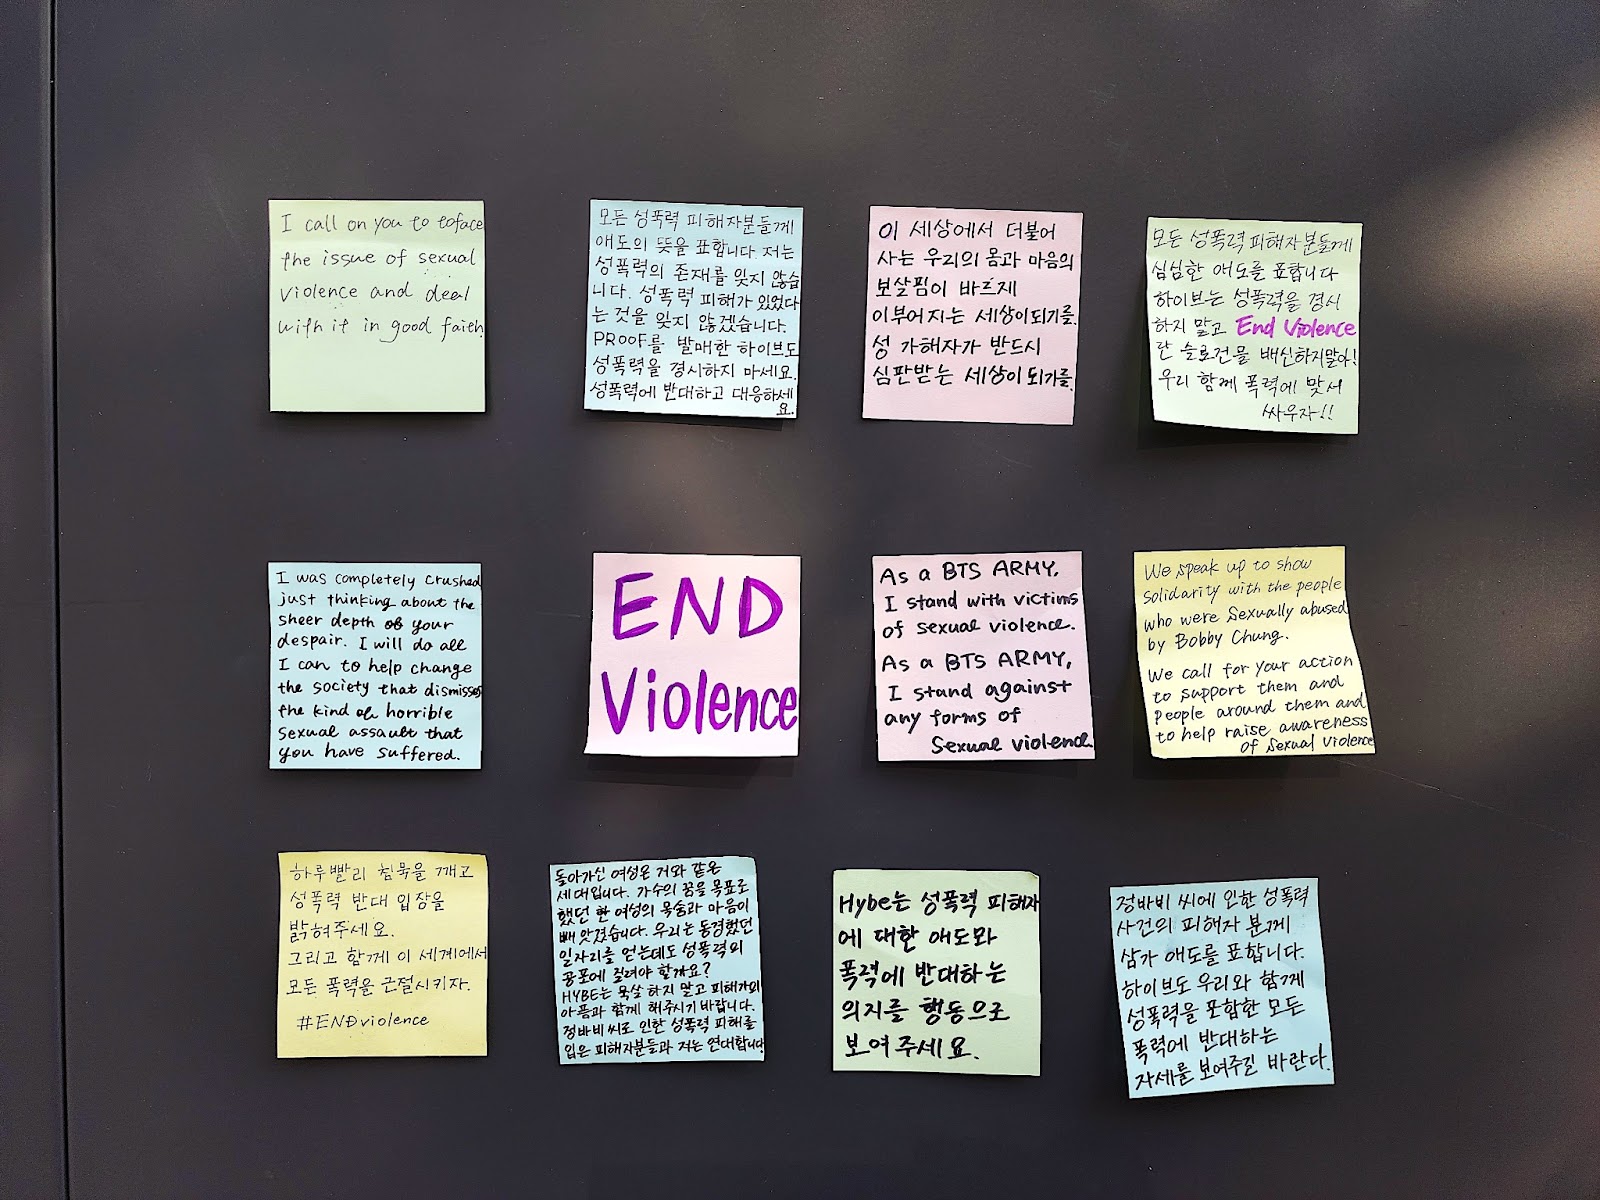 I call on you to toface
the issue of sexual
violence and deal
with it in good faith.
모든 성폭력 피해자분들께
애도의 뜻을 표합니다. 저는
성폭력의 존재를 잊지 않습
니다. 성폭력 피해가 있었다
는 것을 잊지 않겠습니다.
PROOF를 발매한 하이브도
성폭력을 경시하지 마세요.
성폭력에 반대하고 대응하세
요.
이 세상에서 더불어
사는 우리의 몸과 마음의
보살핌이 바르게
이루어지는 세상이 되기를.
성 가해자가 반드시
심판받는 세상이 되기를.
모든 성폭력 피해자분들께
심심한 애도를 표합니다
하이브는 성폭력을 경시
하지 말고 End Violence
란 슬로건을 배신하지말아!
우리 함께 폭력에 맞서
싸우자!!
I was completely crushed
just thinking about the
sheer depth of your
despair. I will do all
I can to help change
the society that dismisses
the kind of horrible
sexual assault that
you have suffered.
END
Violence
As a BTS ARMY,
I stand with victims
of sexual violence.
As a BTS ARMY,
I stand against
any forms of
Sexual violence.
We speak up to show
solidarity with the people
who were sexually abused
by Bobby Chung.
We call for your action
to support them and
people around them and
to help raise awareness
of sexual violence
하루빨리 침묵을 깨고
성폭력 반대 입장을
밝혀주세요.
그리고 함께 이 세계에서
모든 폭력을 근절시키자.
#ENDviolence
돌아가신 여성은 저와 같은
세대입니다. 가수의 꿈을 목표로
했던 한 여성의 목숨과 마음이
빼앗겼습니다. 우리는 동경했던
일자리를 얻는데도 성폭력의
공포에 질려야 할까요?
HYBE는 묵살하지 말고 피해자의
아픔과 함께 해주시기 바랍니다.
정바비 씨로 인한 성폭력 피해를
입은 피해자분들과 저는 연대합니다
Hybe는 성폭력 피해자
에 대한 애도와
폭력에 반대하는
의지를 행동으로
보여주세요.
정바비 씨에 인한 성폭력
사건의 피해자 분께
삼가 애도를 표합니다.
하이브도 우리와 함께
성폭력을 포함한 모든
폭력에 반대하는
자세를 보여주길 바란다.